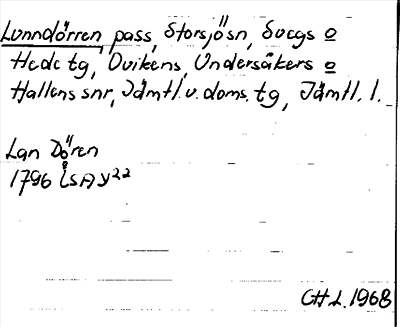 Lunndörren, pass, Storsjö sn, Svegs o
Hede tg, Ovikens, Undersåkers o
Hallens snr, Jämtl. v. doms. tg, Jämtl. l.
Lan Dören
1796 LSA y22
CH L. 1968